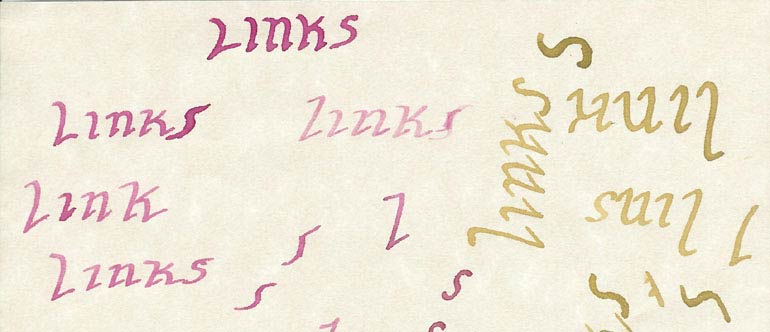 Links
Links
links
Link
Links
l
s
s
s
links
s
link
lins
l
s
s